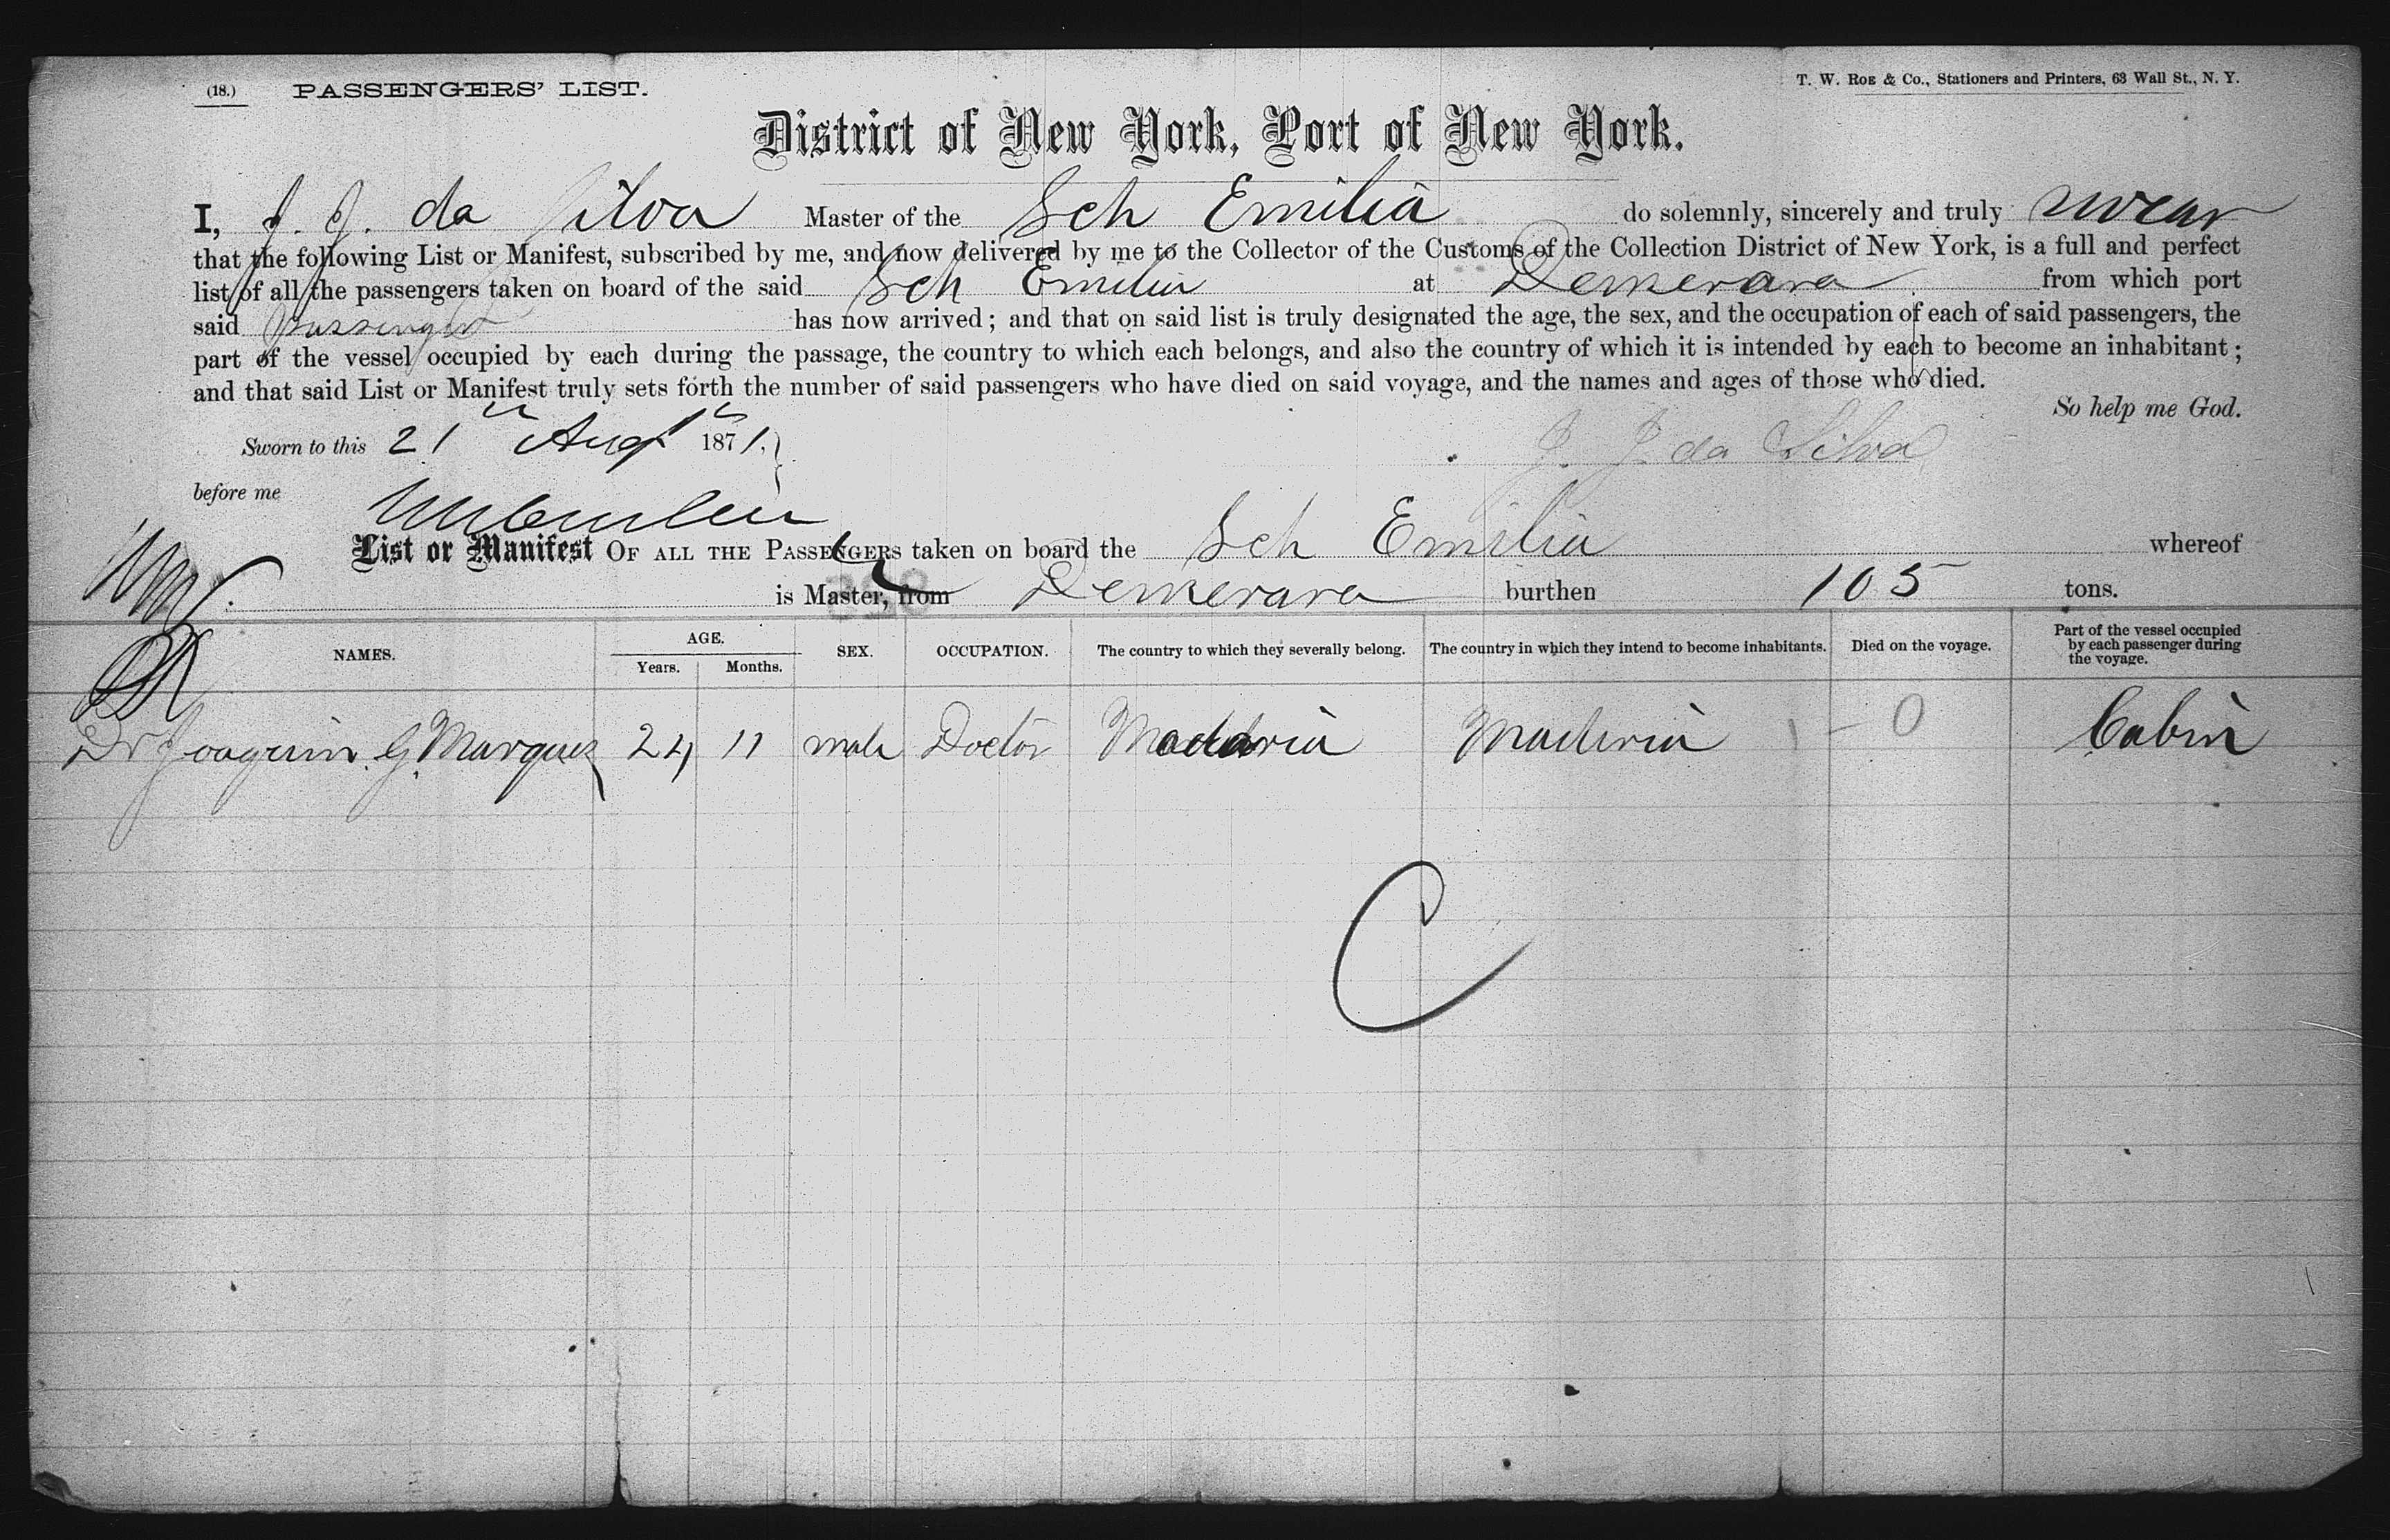 (18.) PASSENGERS' LIST.
T. W. ROE & Co., Stationers and Printers, 63 Wall St., N. Y.
District of New York, Port of New York.
I, J. J. da Silva Master of the Sch Emilia do solemnly, sincerely and truly swear
that the following List or Manifest, subscribed by me, and now delivered by me to the Collector of the Customs of the Collection District of New York, is a full and perfect
list of all the passengers taken on board of the said Sch Emilia at Demerara from which port
said passenger has now arrived; and that on said list is truly designated the age, the sex, and the occupation of each of said passengers, the
part of the vessel occupied by each during the passage, the country to which each belongs, and also the country of which it is intended by each to become an inhabitant;
and that said List or Manifest truly sets forth the number of said passengers who have died on said voyage, and the names and ages of those who died.
So help me God.
Sworn to this 21 Augt 1871.
J. J. da Silva
before me
List or Manifest OF ALL THE PASSENGERS taken on board the Sch Emilia whereof
is Master, from Demerara burthen 105 tons.
NAMES. AGE. Years. Months. SEX. OCCUPATION. The country to which they severally belong. The country in which they intend to become inhabitants. Died on the voyage. Part of the vessel occupied by each passenger during the voyage.
Dr Joaquin G. Marquez 24 11 male Doctor Maderia Maderia 0 Cabin
C